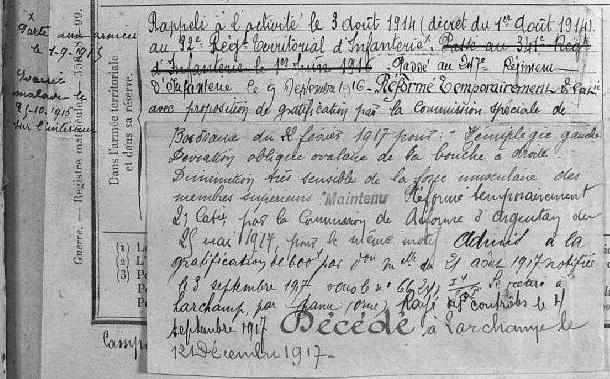 x
Parti aux armées
le 1-9-1915
Evacué
malade le
25-10-1916
sur l'intérieur
Guerre. — Registre matricule.
Dans l'armée territoriale
et dans sa réserve.
Rappelé à l'activité le 3 août 1914 (décret du 1er Août 1914).
au 32e Régt Territorial d'Infanterie x. Passé au 341e Régt
d'Infanterie le 1er Juin 1916 Passé au 247e Régiment
d'Infanterie le 9 Septembre 1916 - Réformé Temporairement 2e Catie
avec proposition de gratification par la Commission spéciale de
Bordeaux du 22 février 1917 pour: - Hémiplégie gauche
Déviation oblique ovalaire de la bouche à droite.
Diminution très sensible de la force musculaire des
membres supérieurs "Maintenu Réformé temporairement
2e Catie par la Commission de Réforme d'Argentan du
25 mai 1917, pour le même motif Admis à la
gratification de 600f par don mlle du 21 août 1917 notifiée
le 3 septembre 1917 Se retire à
Larchamp, par (Orne) Rayé des contrôles le 4
septembre 1917
Décédé à Larchamp le
12 Décembre 1917 -
(1) L
(2) L
(3) P
P
Camp